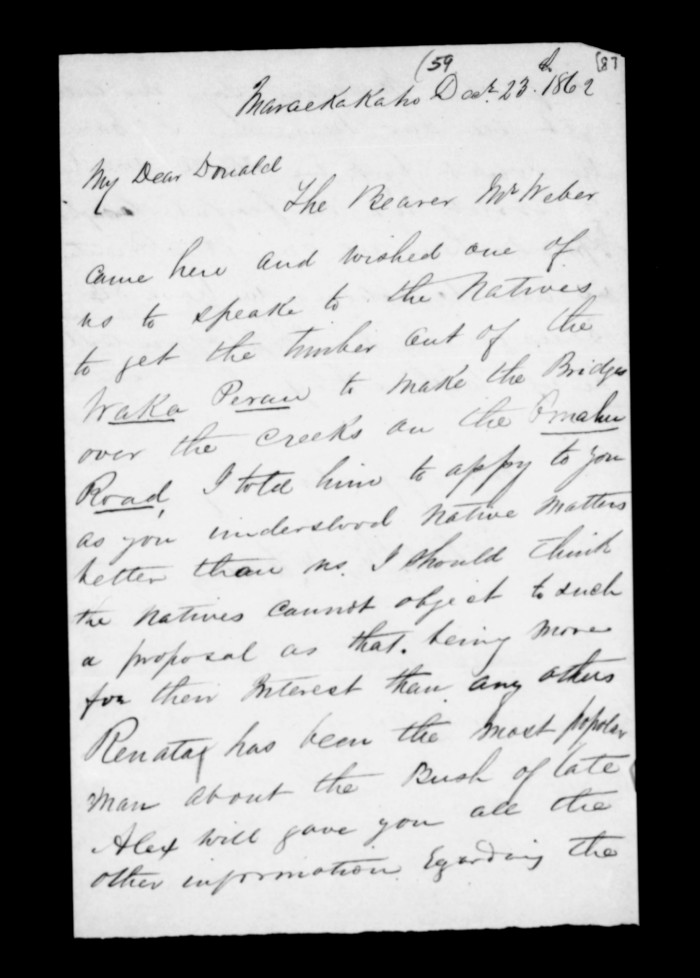 (59
(87
Maraekakaho Decr. 23.d. 1862
My Dear Donald
The Bearer Mr Weber
came here and wished one of
us to speake to the Natives
to get the timber out of the
Waka Perau to make the Bridges
over the creeks on the Omahu
Road, I told him to appy to you
as you understood Native Matters
better than us. I should think
the natives cannot object to such
a proposal as that. being more
for their Interest than any others
Renata has been the most popolar
man about the Bush of late
Alex will gave you all the
other information Egarding the